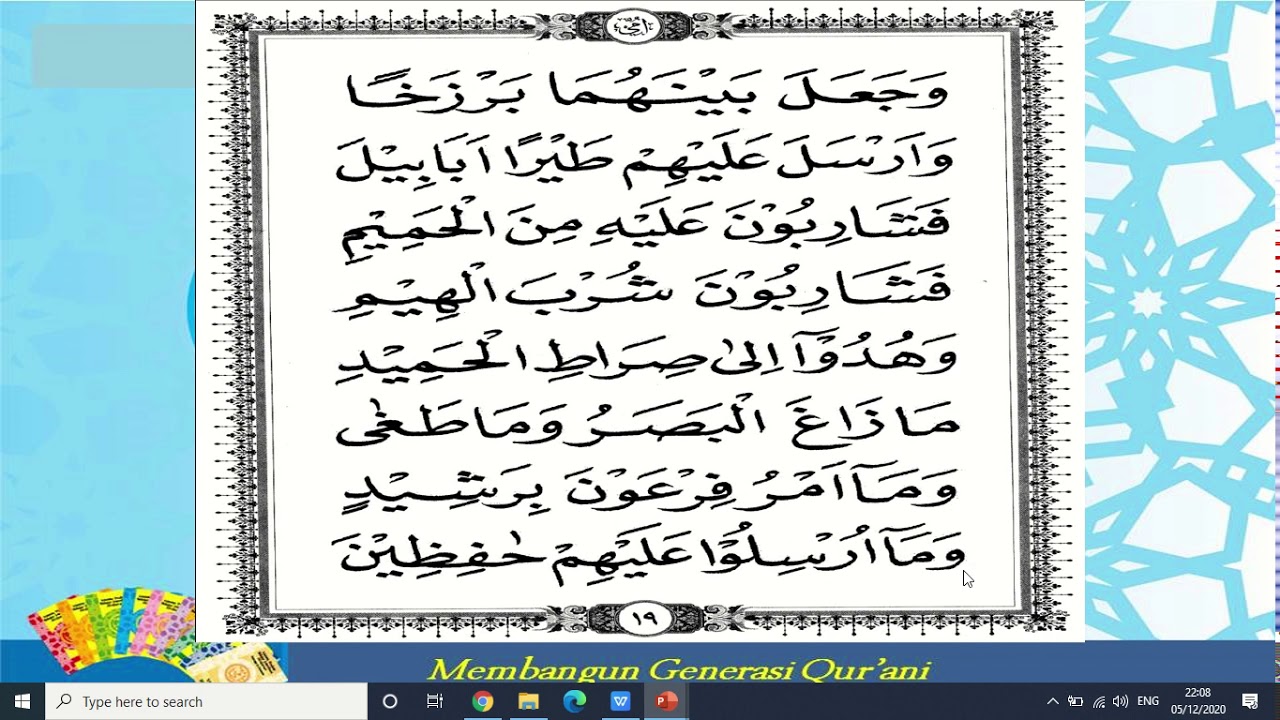 وَجَعَلَ بَيْنَهُمَا بَرْزَخًا
وَاَرْسَلَ عَلَيْهِمْ طَيْرًا اَبَابِيْلَ
فَشَارِبُوْنَ عَلَيْهِ مِنَ الْحَمِيْمِ
فَشَارِبُوْنَ شُرْبَ الْهِيْمِ
وَهُدُوْٓا اِلىٰ صِرَاطِ الْحَمِيْدِ
مَا زَاغَ الْبَصَرُ وَمَا طَغٰى
وَمَآ اَمْرُ فِرْعَوْنَ بِرَشِيْدٍ
وَمَآ اُرْسِلُوْا عَلَيْهِمْ حٰفِظِيْنَ
١٩
Membangun Generasi Qur'ani
Type here to search
ENG
22:08
05/12/2020